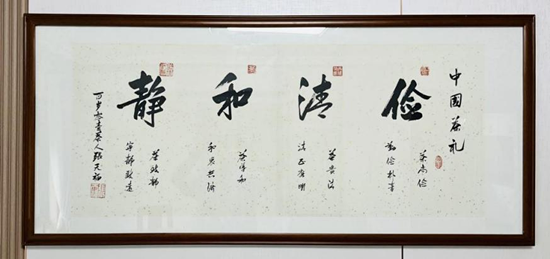 中國茶礼
俭
茶尚俭
勤俭朴素
清
茶贵清
清正廉明
和
茶導和
和衷共济
静
茶致静
宁静致远
茶人張天福